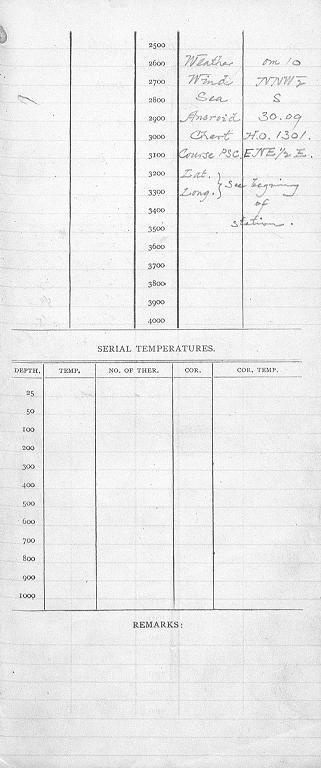 2500
2600 Weather om 10
2700 Wind NNW 2
2800 Sea S
2900 Aneroid 30.09
3000 Chart H.O. 1301.
3100 Course PSC. ENE 1/2 E.
3200 Lat. } See begining
3300 Long. of
3400 station.
3500
3600
3700
3800
3900
4000
SERIAL TEMPERATURES.
DEPTH. TEMP. NO. OF THER. COR. COR. TEMP.
25
50
100
200
300
400
500
600
700
800
900
1000
REMARKS: